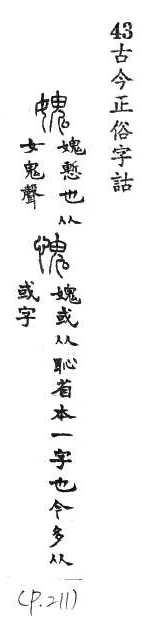 43古今正俗字詁
媿媿慙也从
女鬼聲
愧媿或从恥省本一字也今多从
或字
(P.211)